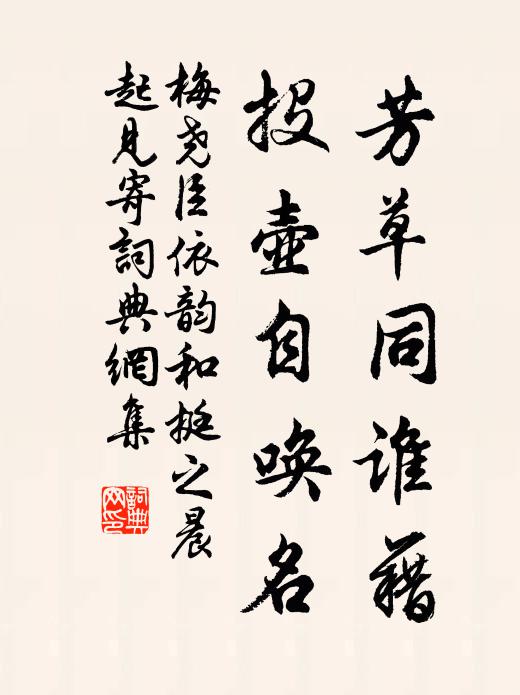 芳草同谁藉
投壶自唤名
梅尧臣依韵和挺之晨
起见寄詞典網集
詞典
网印